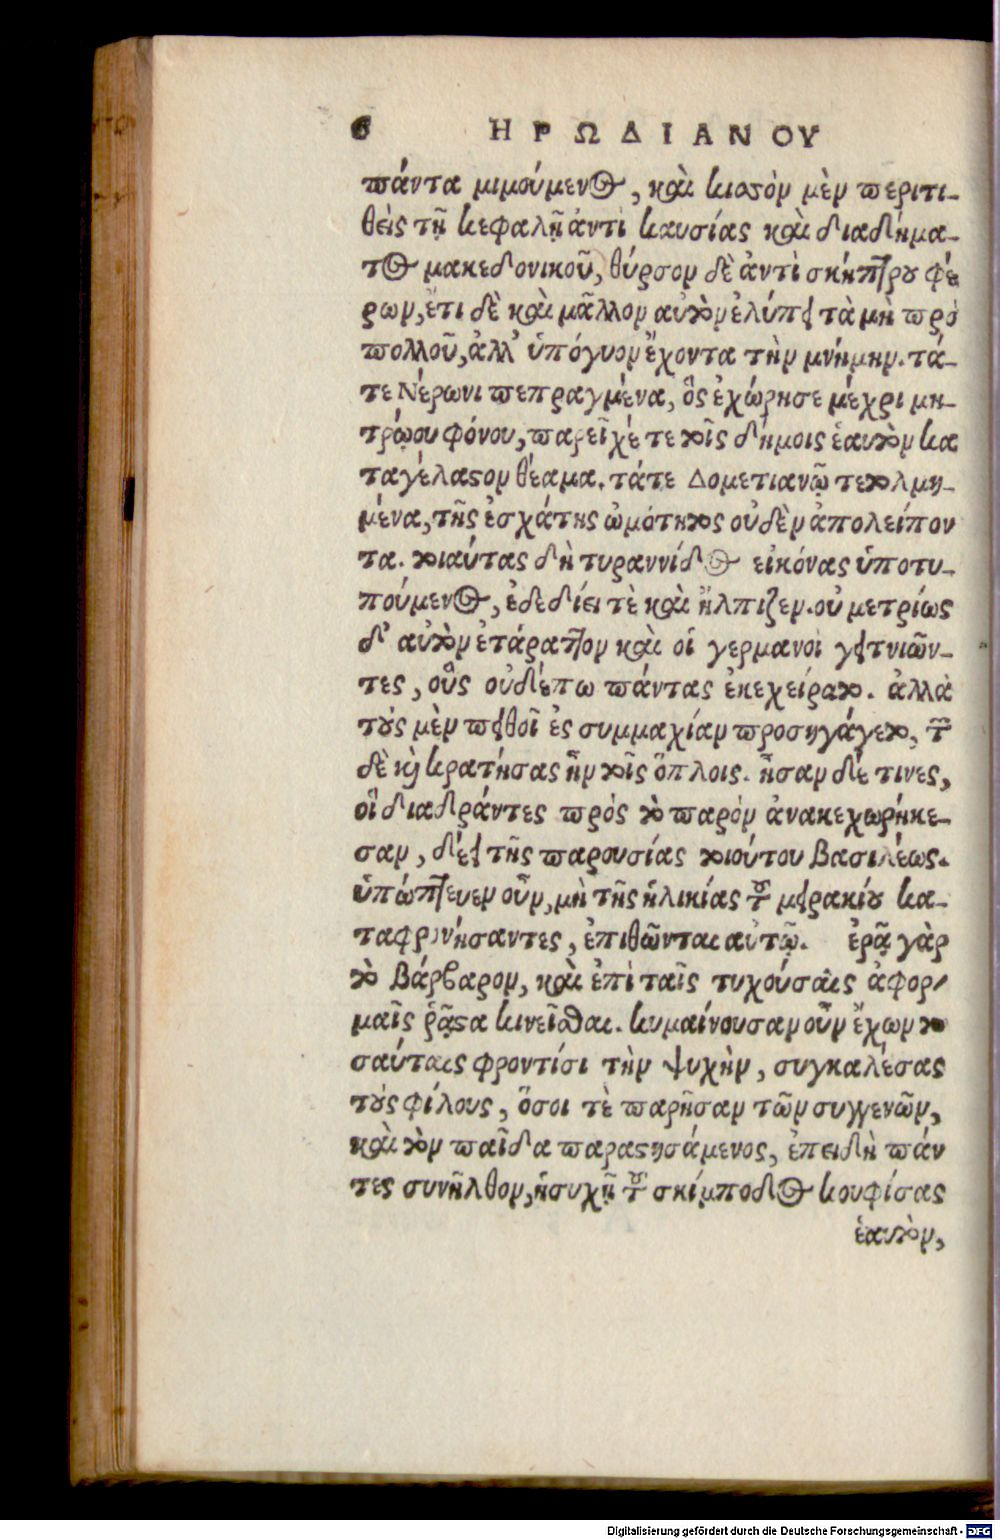 6 ΗΡΩΔΙΑΝΟΥ
πάντα μιμούμενος, καὶ κισσὸν μὲν περιτι-
θεὶς τῇ κεφαλῇ ἀντὶ καυσίας καὶ διαδήμα-
τος μακεδονικοῦ, θύρσον δὲ ἀντὶ σκήπτρου φέ
ρων, ἔτι δὲ καὶ μᾶλλον αὐτὸν ἐλύπει τὰ μὴ πρὸ
πολλοῦ, ἀλλ' ὑπόγυον ἔχοντα τὴν μνήμην. τά-
τε Νέρωνι πεπραγμένα, ὃς ἐχώρησε μέχρι μη-
τρῴου φόνου, παρεῖχέ τε τοῖς δήμοις ἑαυτὸν κα
ταγέλαστον θέαμα. τάτε Δομετιανῷ τετολμη-
μένα, τῆς ἐσχάτης ὠμότητος οὐδὲν ἀπολείπον
τα. τοιαύτας δὴ τυραννίδος εἰκόνας ὑποτυ-
πούμενος, ἐδεδίει τὲ καὶ ἤλπιζεν. οὐ μετρίως
δ' αὐτὸν ἐτάραττον καὶ οἱ γερμανοὶ γειτνιῶν-
τες, οὓς οὐδέπω πάντας ἐκεχείρωτο. ἀλλὰ
τοὺς μὲν πειθοῖ ἐς συμμαχίαν προσηγάγετο, τῶν
δὲ καὶ κρατήσας ἦν τοῖς ὅπλοις. ἦσαν δέ τινες,
οἳ διαδράντες πρὸς τὸ παρὸν ἀνακεχωρήκε-
σαν, δέει τῆς παρουσίας τοιούτου βασιλέως.
ὑπώπτευεν οὖν, μὴ τῆς ἡλικίας τοῦ μειρακίου κα-
ταφρονήσαντες, ἐπιθῶνται αὐτῷ. ἐρᾷ γὰρ
τὸ βάρβαρον, καὶ ἐπὶ ταῖς τυχούσαις ἀφορ-
μαῖς ῥᾷστα κινεῖσθαι. κυμαίνουσαν οὖν ἔχων το
σαύταις φροντίσι τὴν ψυχὴν, συγκαλέσας
τοὺς φίλους, ὅσοι τὲ παρῆσαν τῶν συγγενῶν,
καὶ τὸν παῖδα παραστησάμενος, ἐπειδὴ πάν
τες συνῆλθον, ἡσυχῆ τοῦ σκίμποδος κουφίσας
ἑαυτὸν,
Digitalisierung gefördert durch die Deutsche Forschungsgemeinschaft - DFG